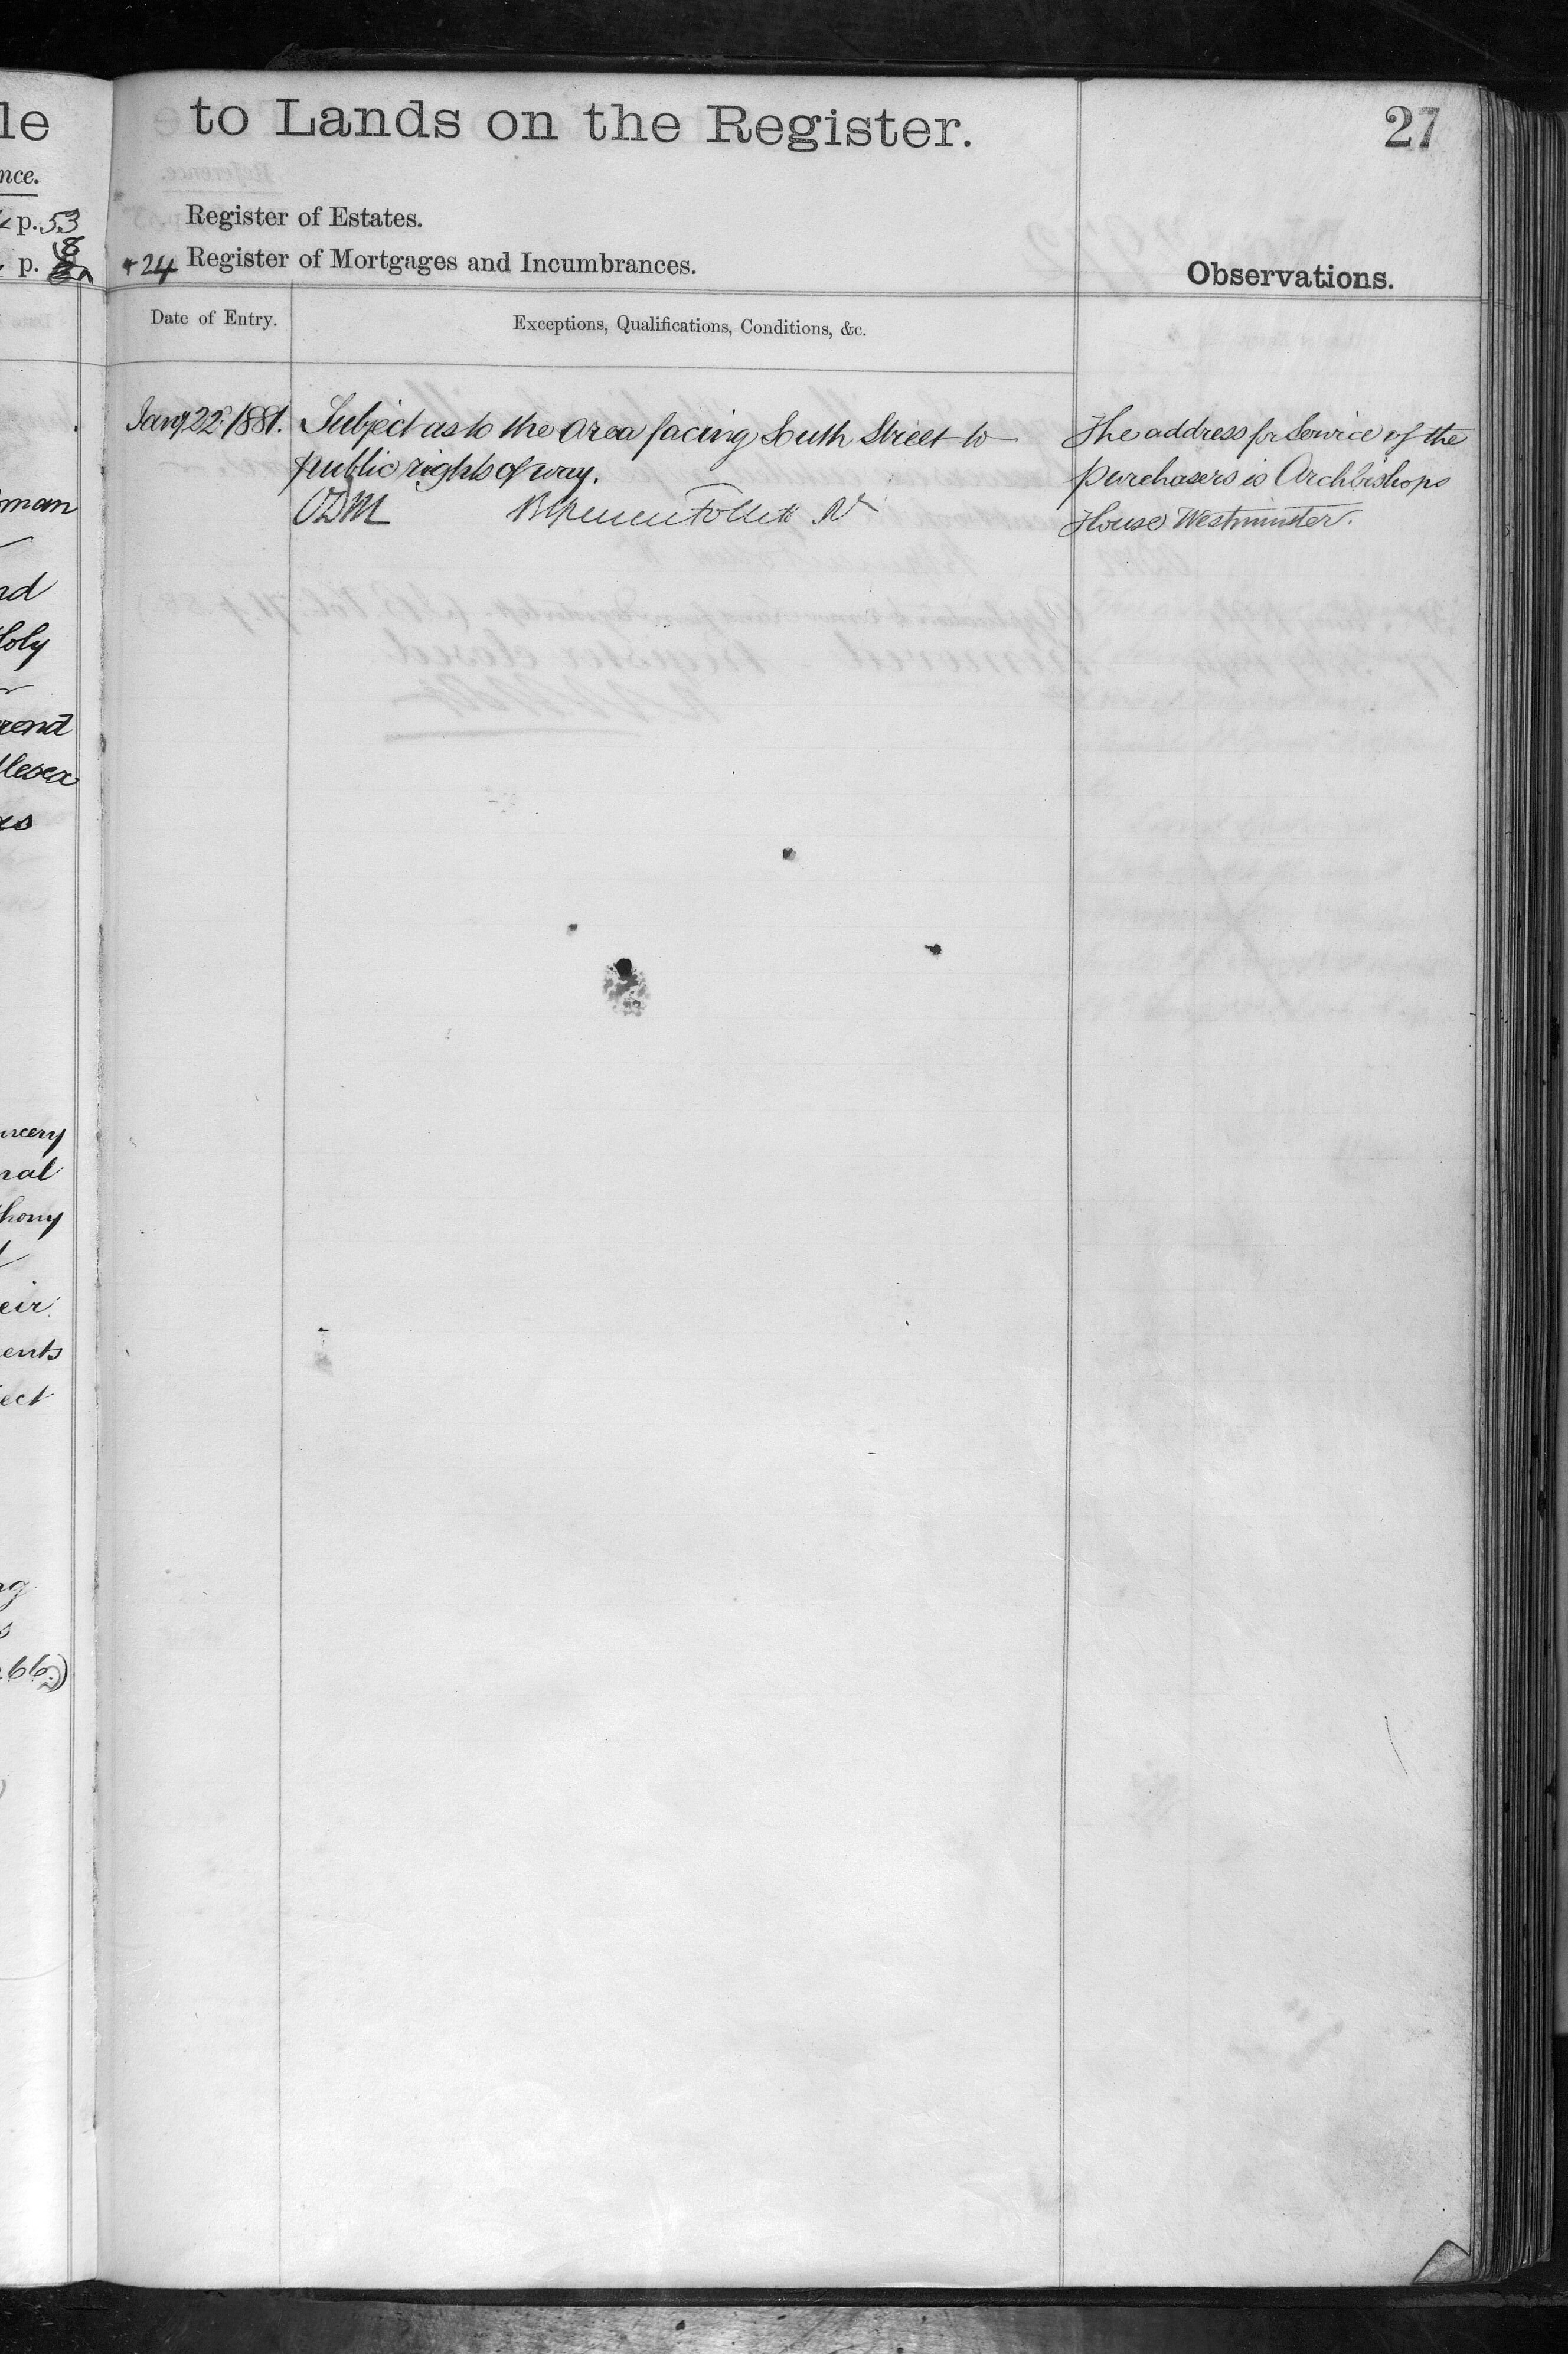 le
nce.
p. 53
p. 8
man
nd
Holy
rend
dlesex
as
ncery
nal
thony
eir
ents
ject
ng
s
66.)
to Lands on the Register.
27
Register of Estates.
+ 24 Register of Mortgages and Incumbrances.
Observations.
Date of Entry.
Exceptions, Qualifications, Conditions, &c.
Jany 22d 1881.
Subject as to the area facing South Street to
public rights of way.
ODM
Follett Rr
The address for Service of the
purchasers is Archbishops
House Westminster.